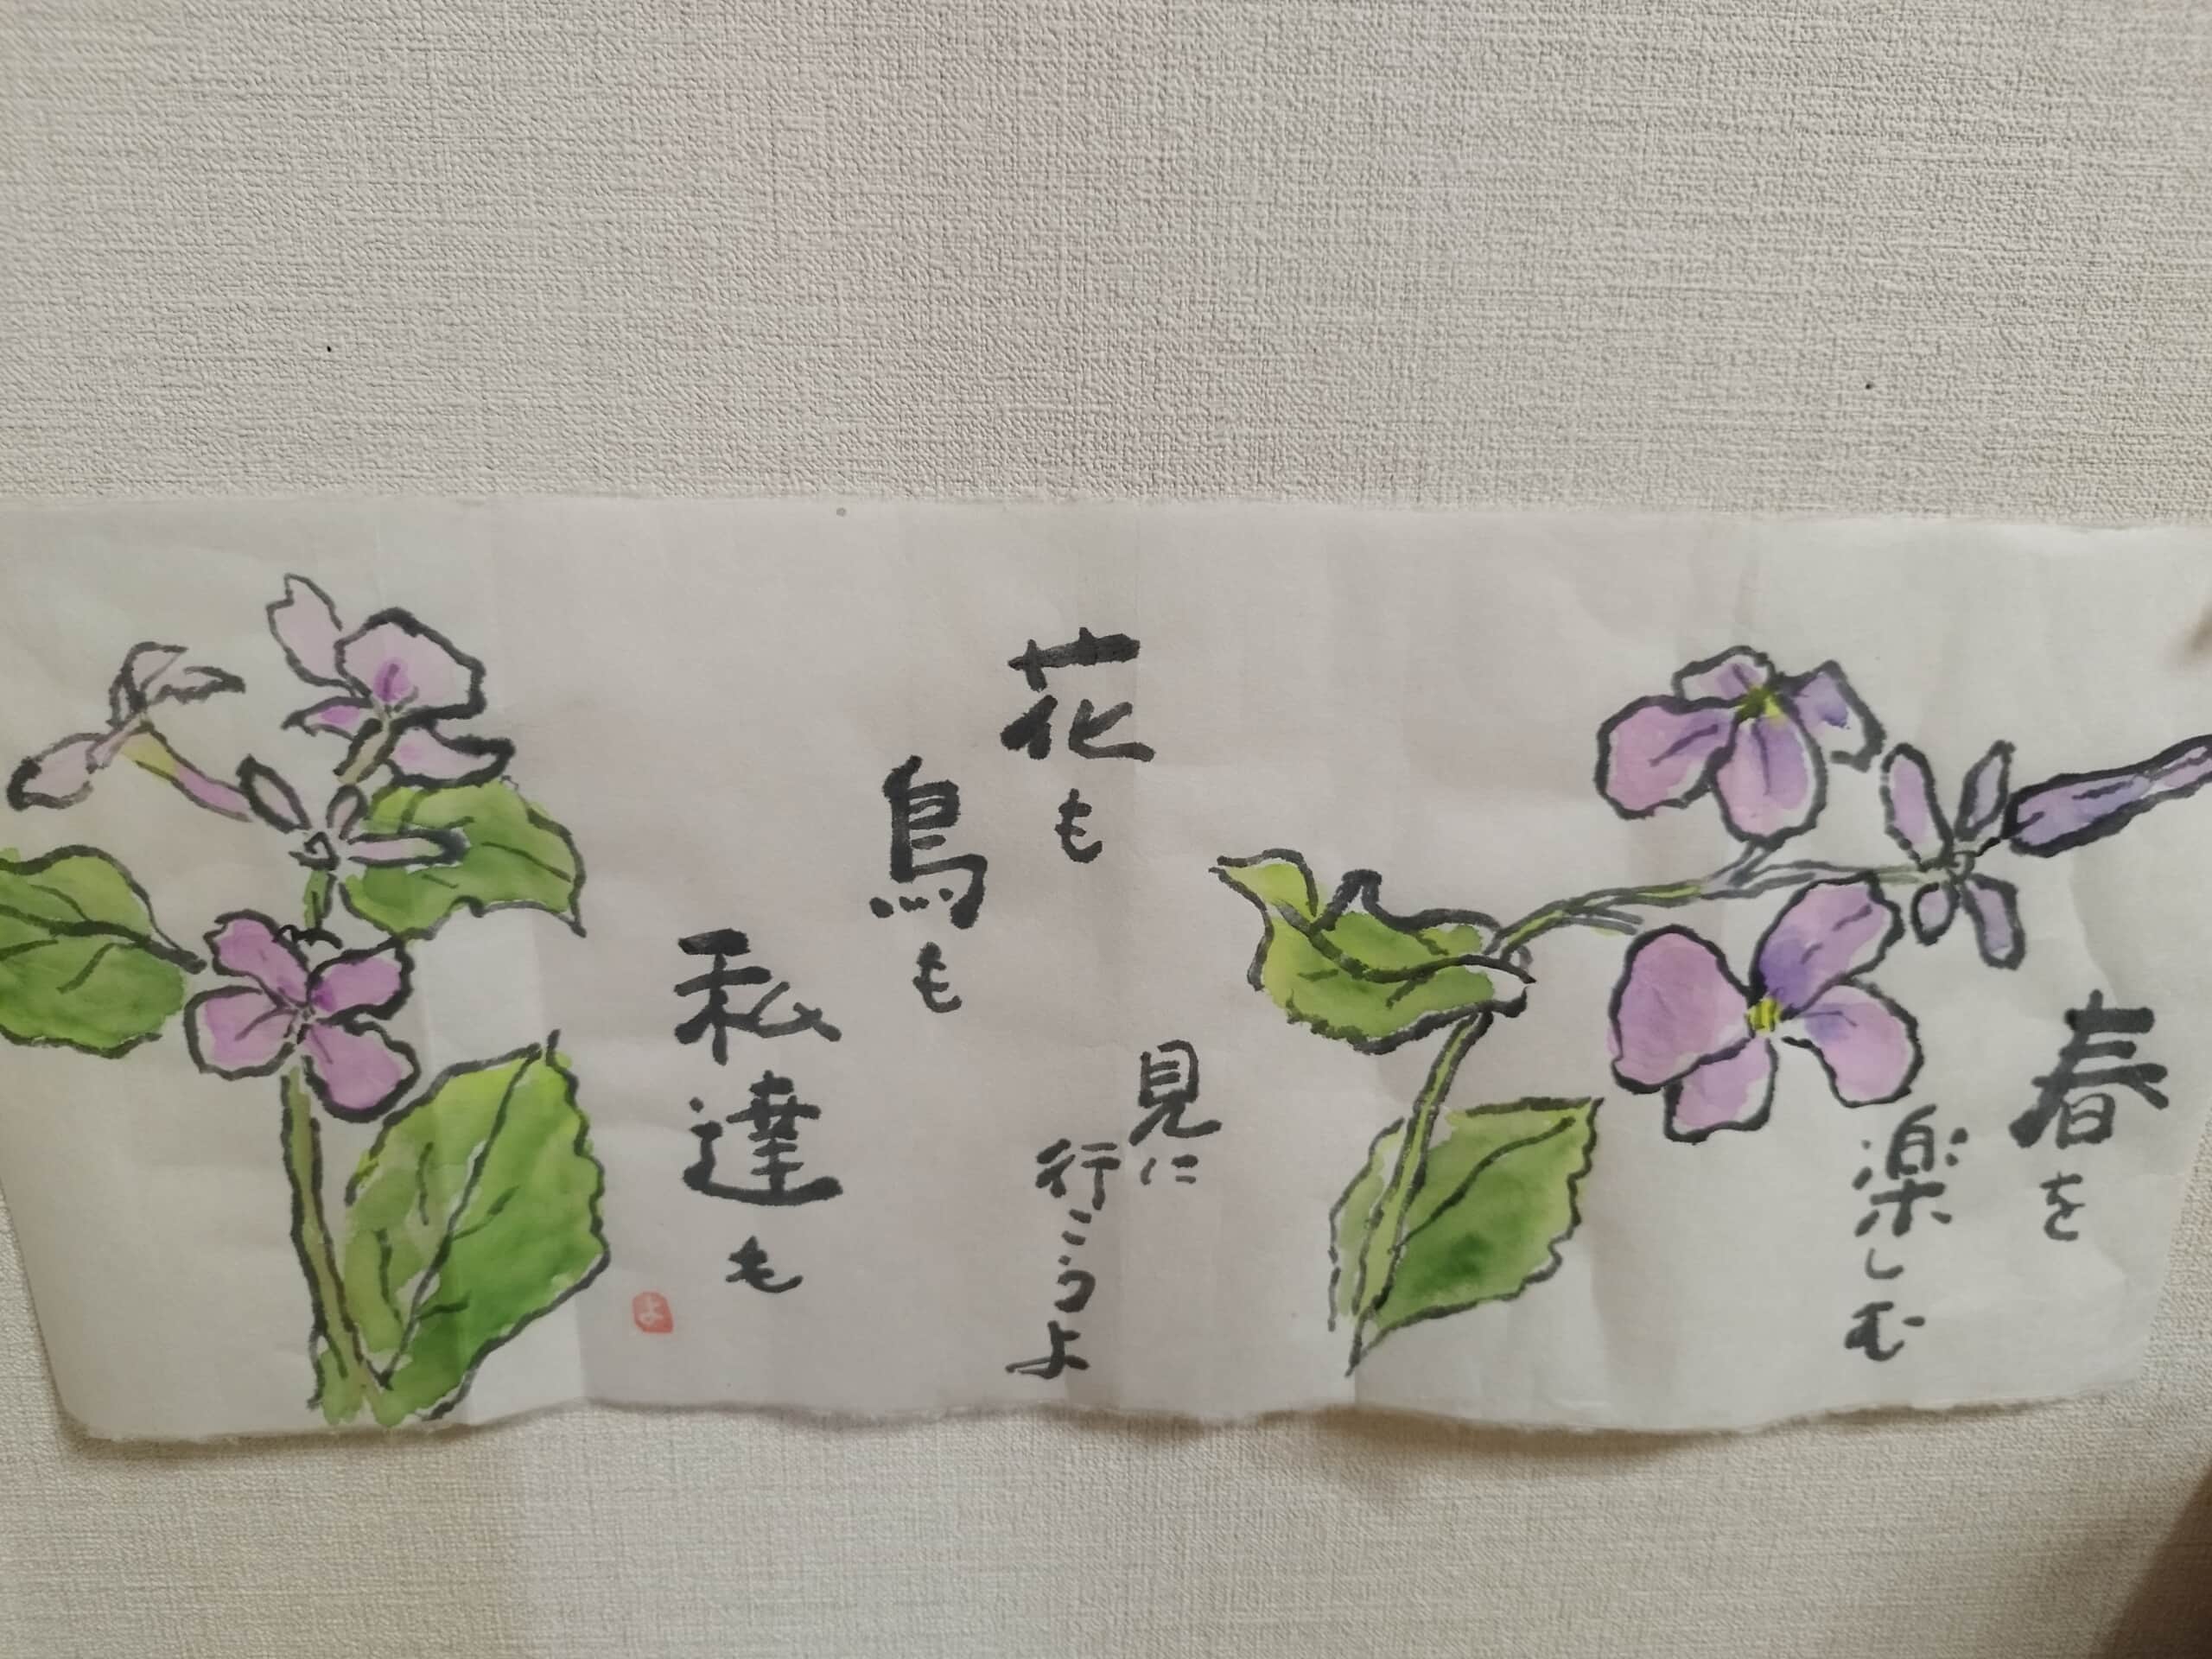 春を
楽しむ
見に
行こうよ
花も
鳥も
私達も
よ